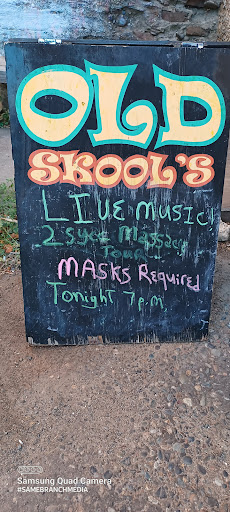 OLD
SKOOL'S
LIVE MUSIC!
Tour
MASKS Required
Tonight 7 p.m.
Samsung Quad Camera
#SAMEBRANCHMEDIA